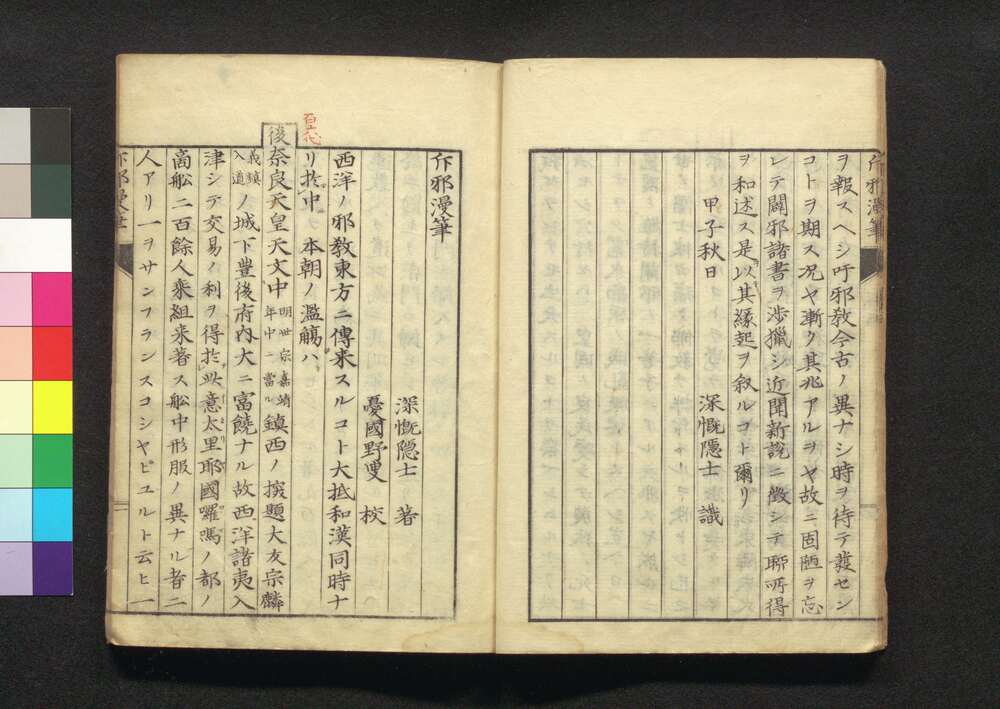 斥邪漫筆
ヲ報スヘシ吁邪敎今古ノ異ナシ時ヲ待テ發セン
コトヲ期ス况ヤ漸ク其兆アルヲヤ故ニ固陋ヲ忘
レテ闢邪諸書ヲ渉獵シ近聞新説ニ徴シテ聊所得
ヲ和述ス是以其緣起ヲ叙ルコト爾リ
甲子秋日
深慨隠士 識
斥邪漫筆
深慨隠士 著
憂國野叟 校
西洋ノ邪敎東方ニ傳来スルコト大抵和漢同時ナ
リ於中本朝ノ濫觴ハ
後奈良天皇天文中明世宗嘉靖年中ニ當ル鎮西ノ探題大友宗麟
義鎮入道ノ城下豊後府内大ニ富饒ナル故西洋諸夷入
津シテ交易ノ利ヲ得於此意太里耶國囉嗎ノ都ノ
商舩二百餘人乗組来著ス舩中形服ノ異ナル者二
人アリ一ヲサンフランスコシヤビユルト云ヒ一